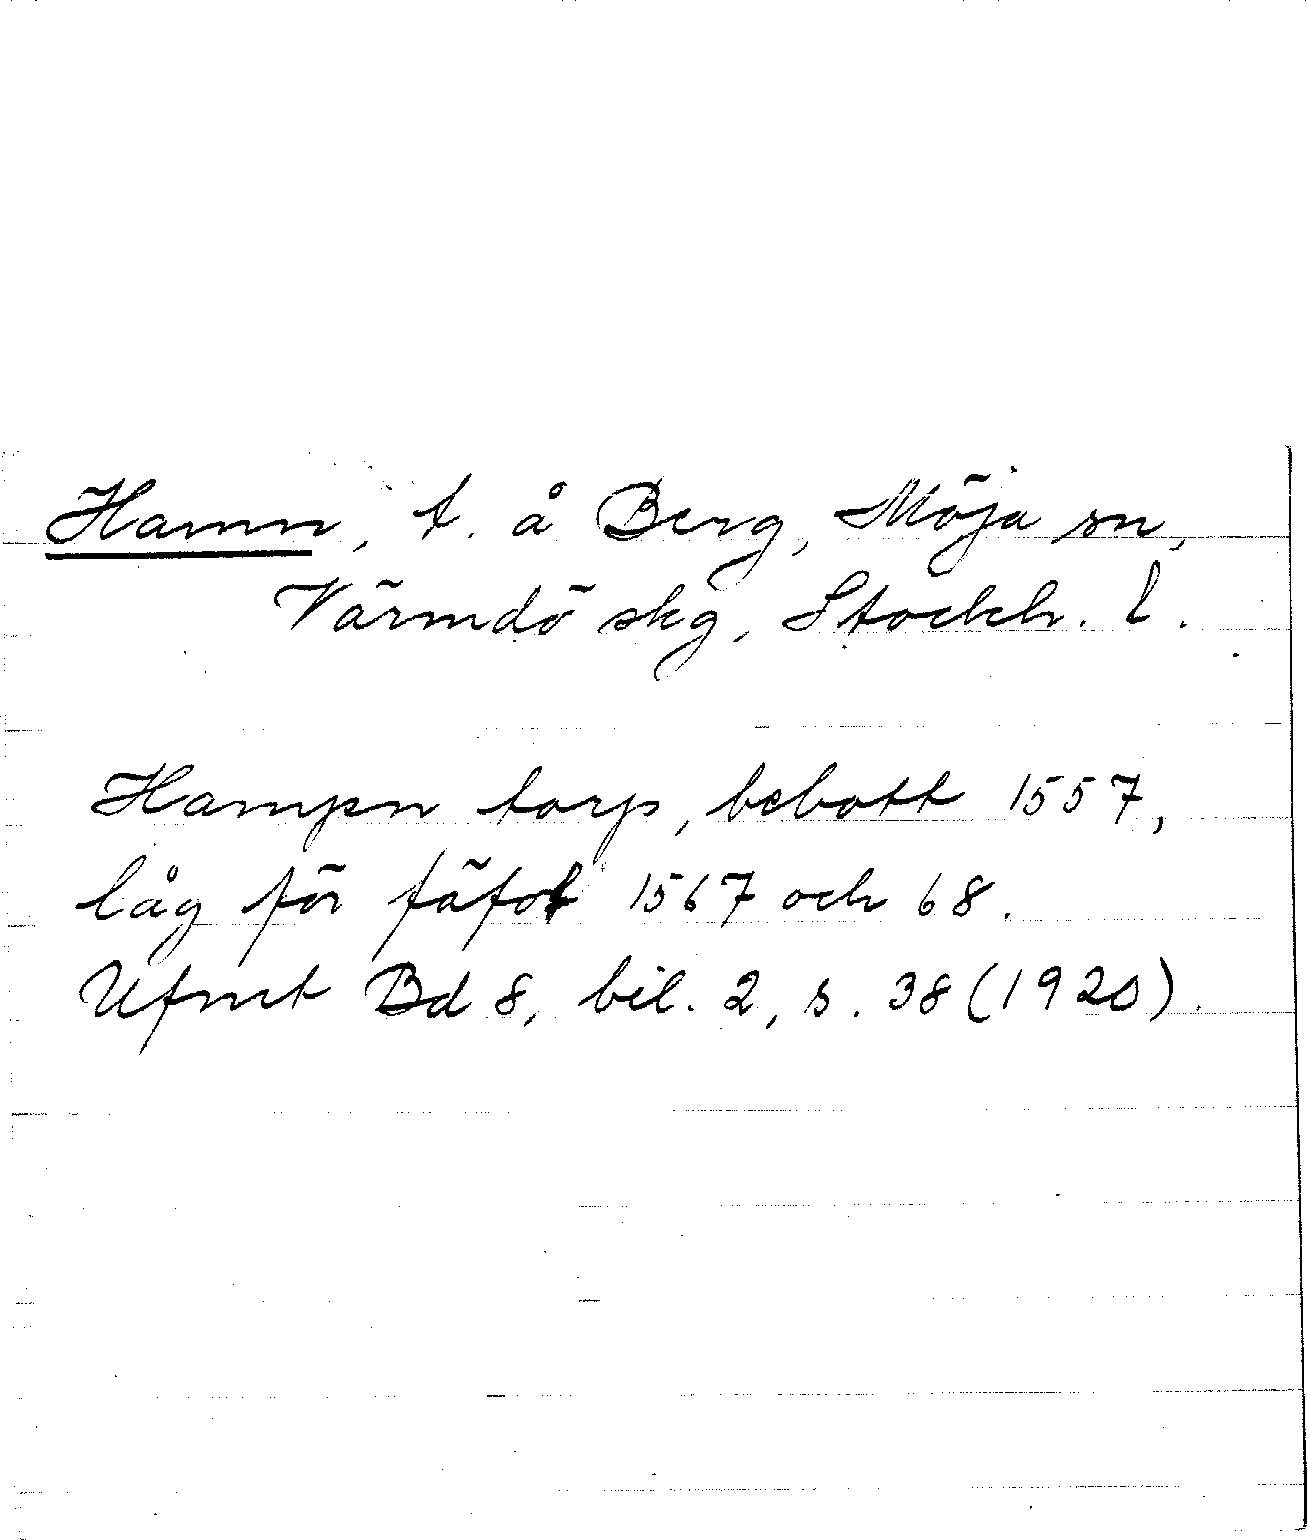 Hamn, t. å Berg, Möja sn,
Värmdö skg, Stockh. l.
Hampn torp, bebott 1557,
låg för fäfot 1567 och 68.
Ufmt Bd 8, bil. 2, s. 38 (1920).